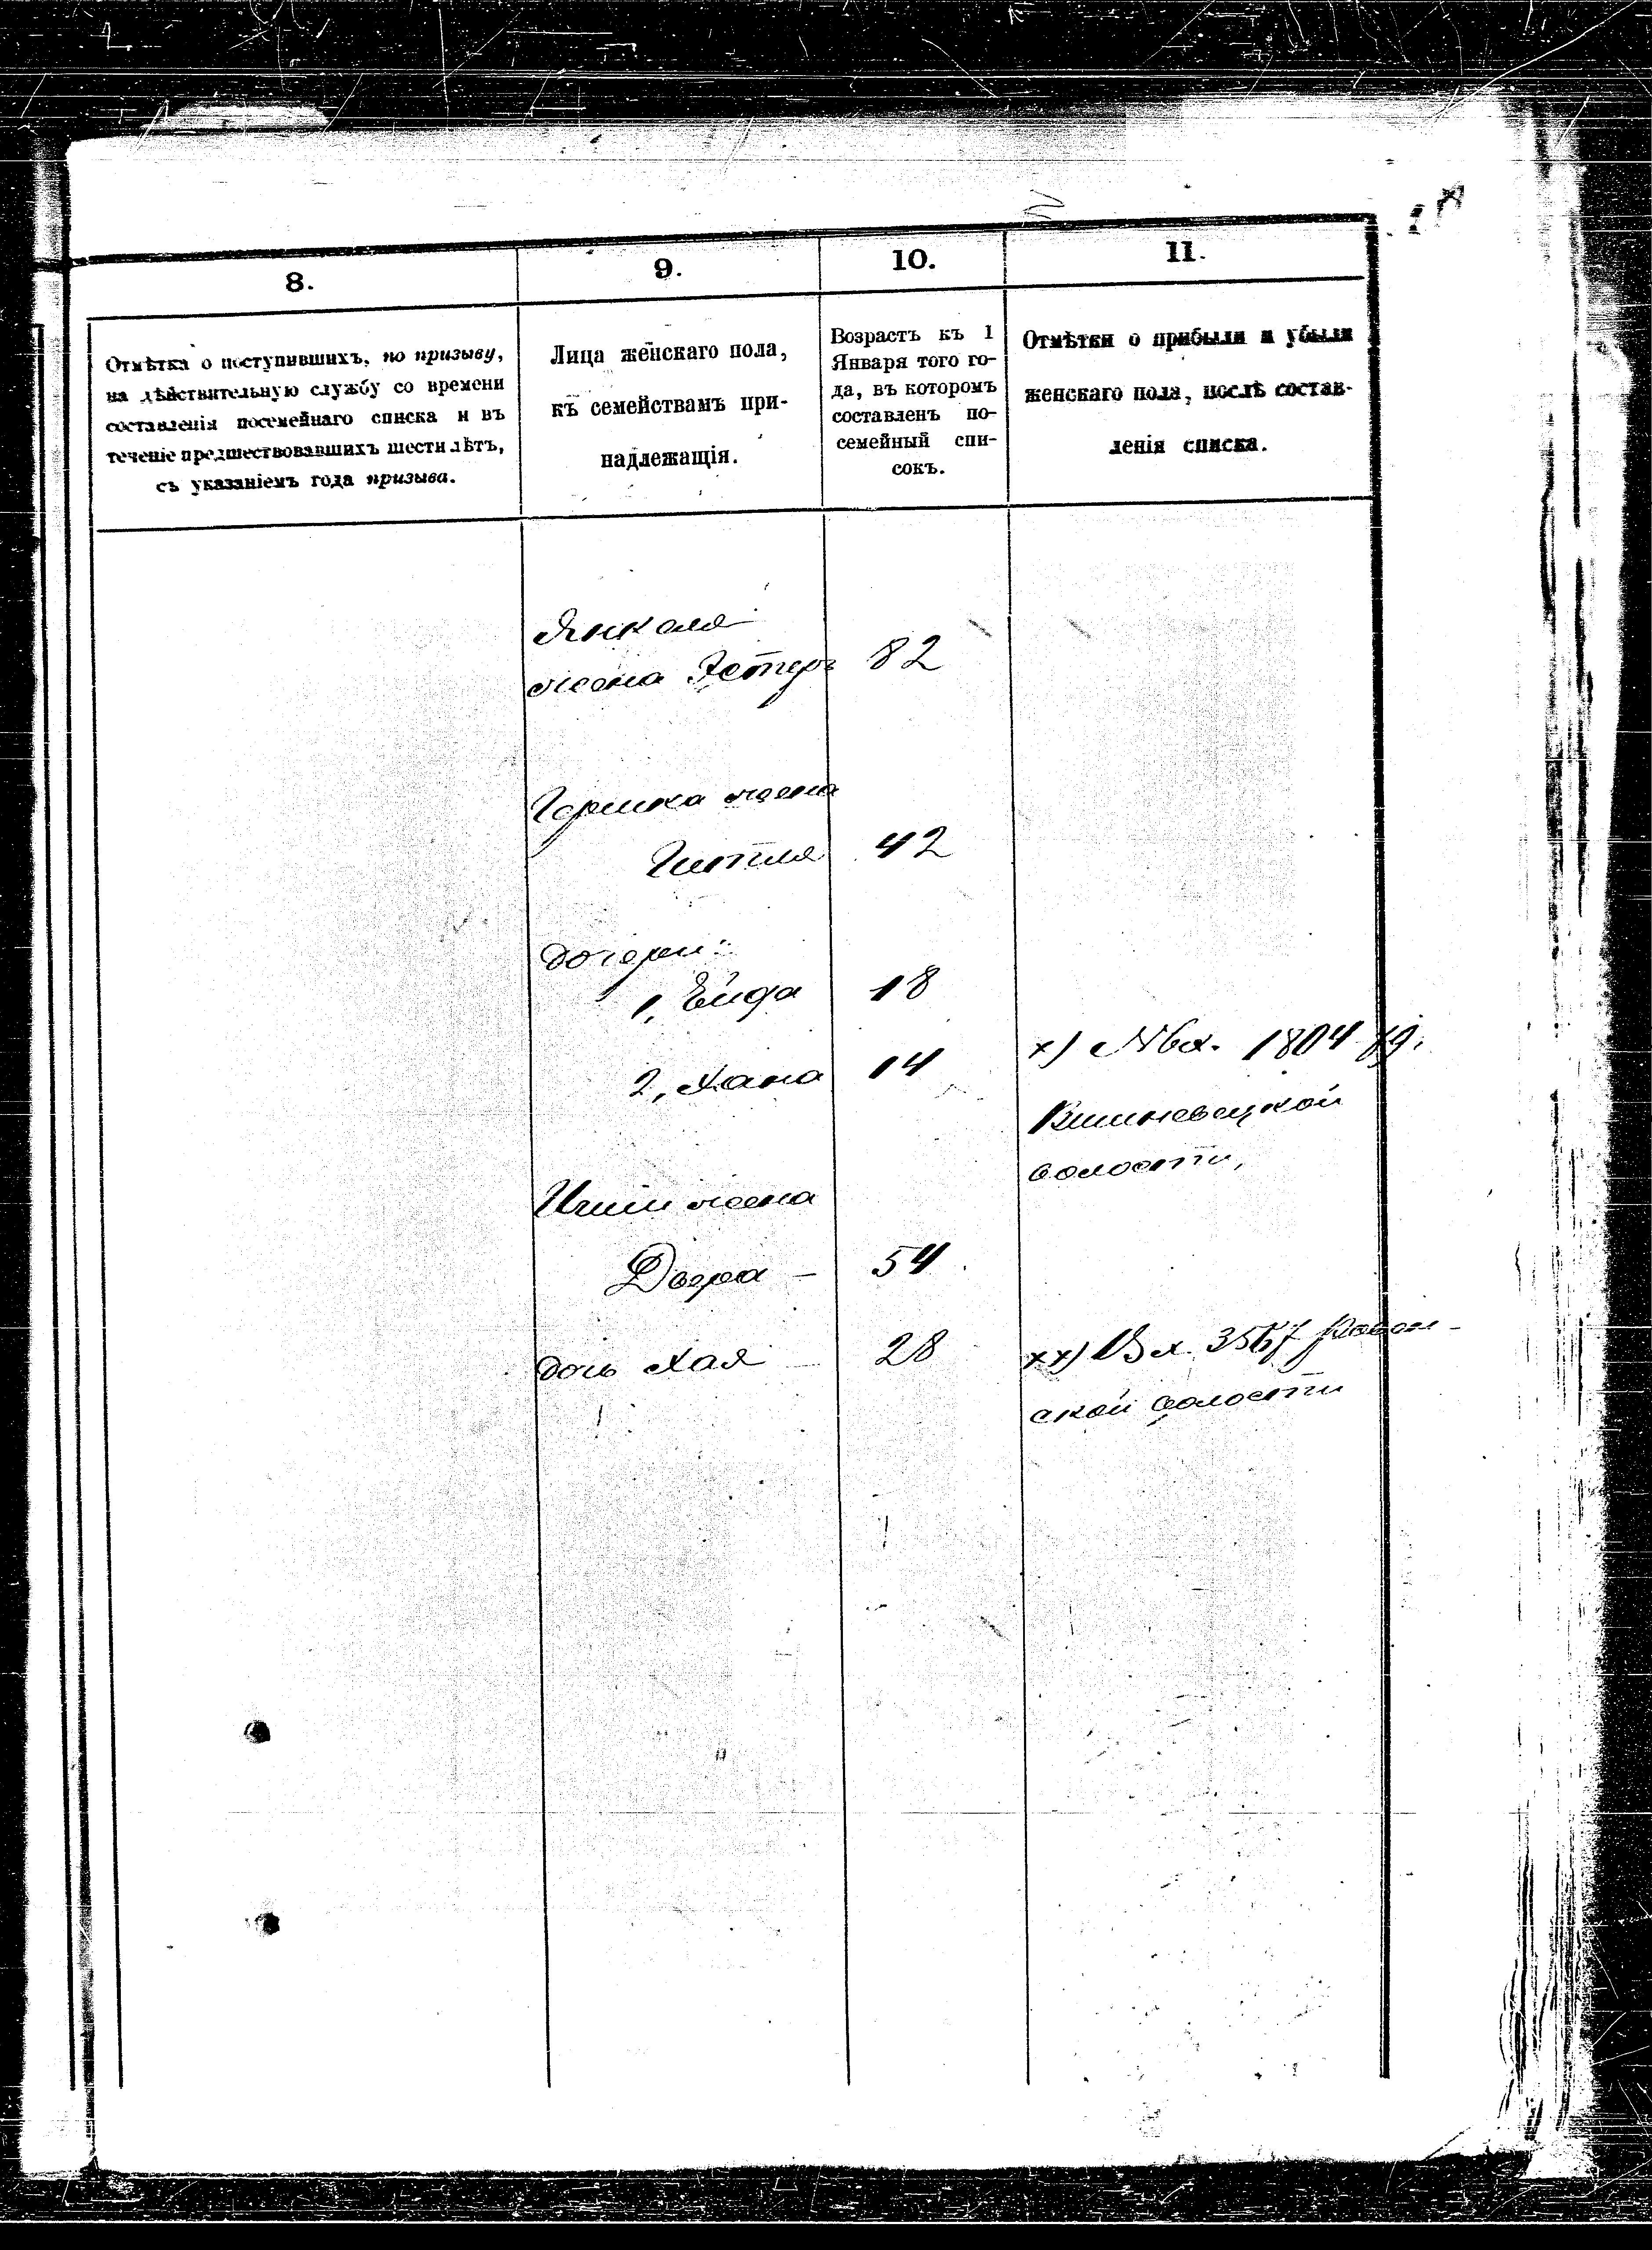 8.
9.
10.
11.
Отмѣтка о поступившихъ, по призыву,
на дѣйствительную службу со времени
составленія посемейнаго списка и въ
теченіе предшествовавшихъ шести лѣтъ,
съ указаніемъ года призыва.
Лица женскаго пола,
къ семействамъ при-
надлежащія.
Возрастъ къ 1
Января того го-
да, въ которомъ
составленъ по-
семейный спи-
сокъ.
Отмѣтки о прибыли и убыли
женскаго пола, послѣ состав-
ленія списка.
Янкеля
жена Эстеръ 82
Гершка жена
Гитля 42
дочери:
1, Ейда 18
2, Хана 14
х) №вх. 1804
Вишневецкой
волости,
жена
Двера – 54
дочь Хая 28
хх) Вх. 3567
ской волости